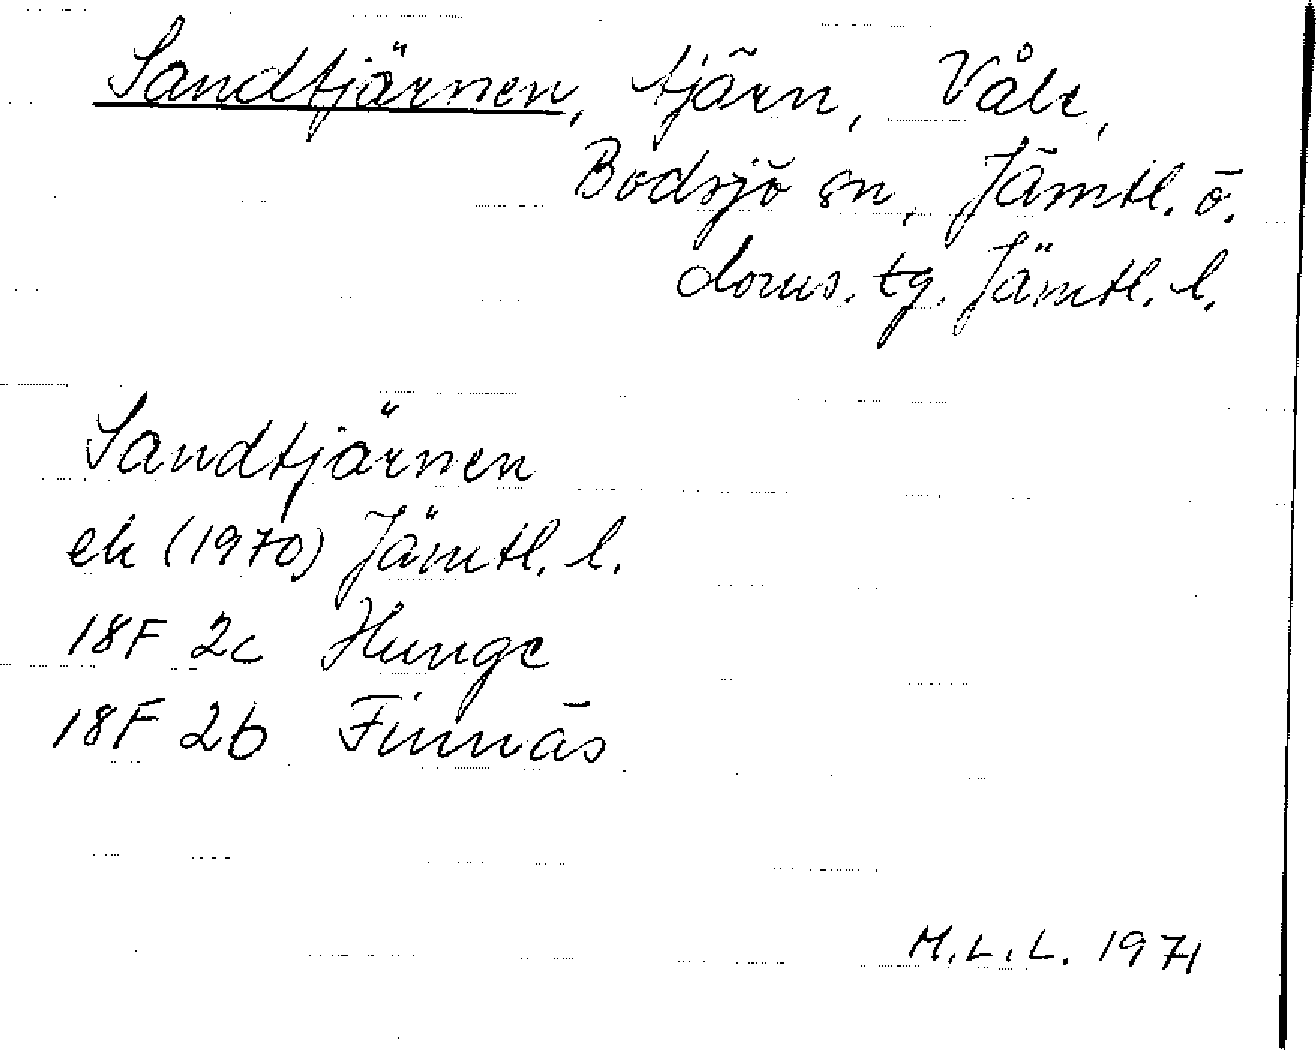 Sandtjärnen, tjärn, Våle,
Bodsjö sn, Jämtl. ö.
doms. tg. Jämtl. l.
Sandtjärnen
ek (1970) Jämtl. l.
18F 2c Hunge
18F 2b Finnäs
M.L.L. 1971